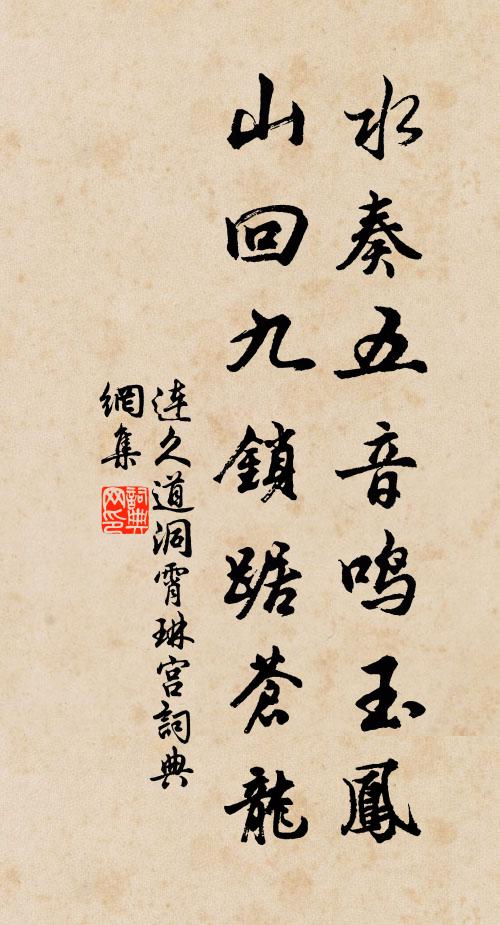 水奏五音鳴玉鳳
山回九鎖踞蒼龍
連久道洞霄琳宮詞典
網集
詞典
网印